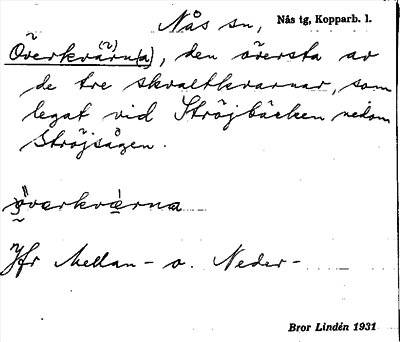 Nås sn, Nås tg, Kopparb. l.
Överkvarn(a), den översta av
de tre skvaltkvarnar, som
legat vid Ströjbäcken nedom
Ströjsågen.
överkvèrna
Jfr Mellan- o. Neder-
Bror Lindén 1931